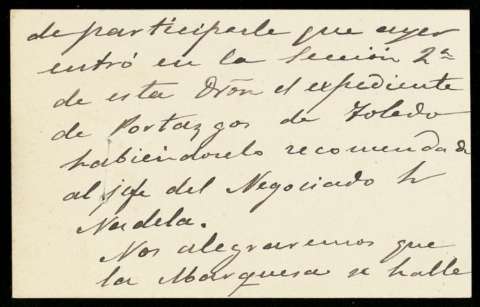 de participarle que ayer
entró en la Sección 2ª
de esta Dron el expediente
de Portazgos de Toledo
habiéndoselo recomendado
al jefe del Negociado Sr
Nadela.
Nos alegraremos que
la Marquesa se halle